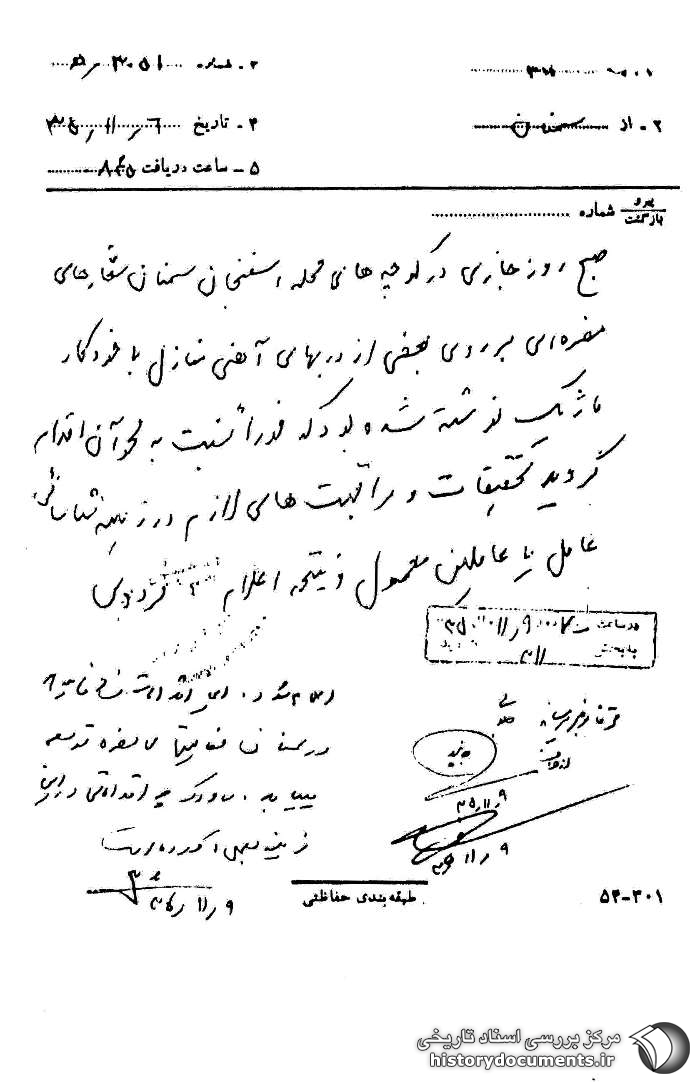 ۱ - به ۳۱۱
۲ - از سمنان
۳ - شماره ۳۰۵۱ / ه‍
۴ - تاریخ ۶ / ۱۱ / ۳۵
۵ - ساعت دریافت ۸۴۵
پیرو
بازگشت
شماره
صبح روز جاری در کوچه های محله اسفنجان سمنان شعارهای
مضره‌ای بر روی بعضی از دربهای آهنی منازل با خودکار
ماژیک نوشته شده بود که فوراً نسبت به محو آن اقدام
گردید تحقیقات و مراقبت های لازم در زمینه شناسائی
عامل یا عاملین معمول و نتیجه اعلام گردد
در ساعت
به بخش ۳۱۱
اعلام شود.
در سمنان فعالیتهای مضره توسعه
چه اقداماتی در این
زمینه بعمل آورده است
۹ / ۱۱ / ۳۵
۹ / ۱۱ / ۳۵
۹ / ۱۱ / ۳۵
طبقه‌بندی حفاظتی
۵۴-۳۰۱
مرکز بررسی اسناد تاریخی
historydocuments.ir